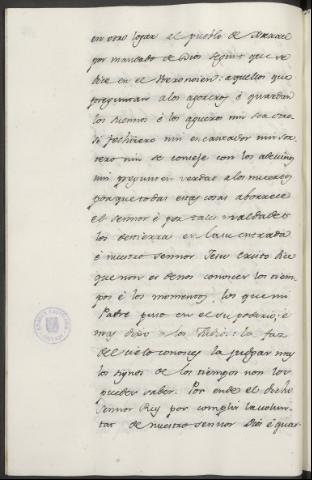 en otro logar el pueblo de Israel
por mandado de Dios segunt que se
dice en el Deronoient: aquellos que
preguntan a los agoreros é guardan
los suennos é los agueros nin sea
fechicero nin encantador nin
nin se conseje con los adevinos
nin pregunten verdat a los muertos
porque todas estas cosas aborrece
el Sennor é por tales maldades
los desterrá en la su entrada
é nuestro Sennor Jesu Cristo dice
que non es de nos conoscer los tiem-
pos é los momentos, los que mi
Padre puso en el su poderio; é
mas dixo a los Judios: la faz
del cielo conosceis la judgar mas
los signos de los tiempos non los
puedes saber. Por ende el dicho
Sennor Rey por complir la volun-
tat de nuestro Sennor Dios é guar-